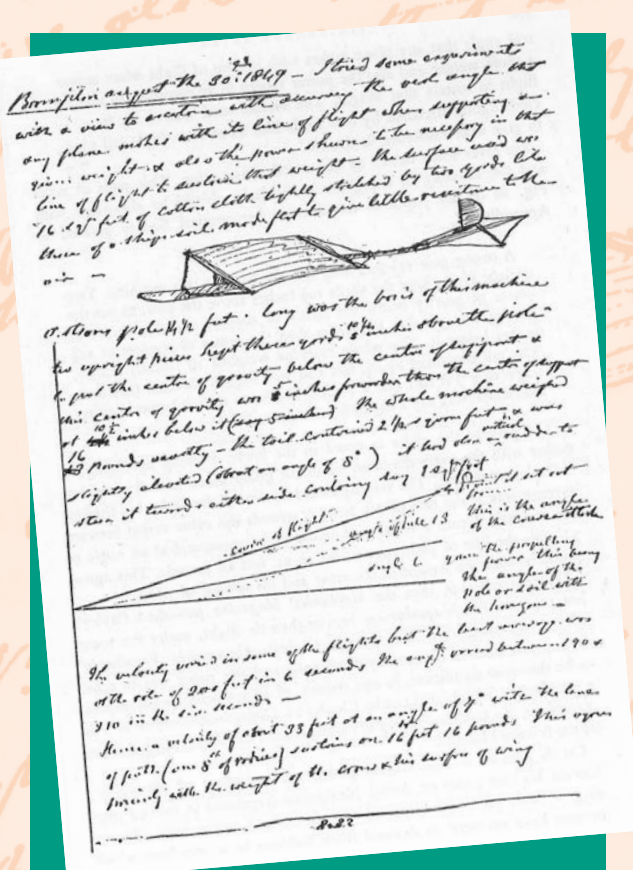 Brompton August the 30th: 1849 – I tried some experiments
with a view to ascertain with accuracy the real angle that
any plane makes with its line of flight when supporting a
given weight, & also the power shewn to be necessary in that
line of flight to sustain that weight – The surface used was
16 sqr feet of cotton cloth tightly stretched by two yards like
those of a ships sail made flat to give little resistance to the
air –
A strong pole 14 1/2 feet long was the basis of this machine
two upright pieces kept these yards 10 1/2 inches above the pole
to put the centre of gravity below the centre of support &
this centre of gravity was 5 inches forwarder than the centre of support
at 10 1/2 inches below it The whole machine weighed
16 pounds exactly – the tail contained 2 1/2 square feet & was
slightly elevated (about an angle of 8°) it had also a vertical rudder to
steer it towards either side containing 1 sqr foot
Point it set out from
course of flight
angle of
This is the angle of the course
angle
gives the propelling power this being
the angle of the
pole or sail with
the horizon –
The velocity varied in some of the flights but the best average was
at the rate of 200 feet in 6 seconds the varied between 190 &
210 in the six seconds –
Hence a velocity of about 33 feet at an angle of with the line
of path sustains on 16 feet 16 pounds This agrees
with the weight of the crow & his surface of wing